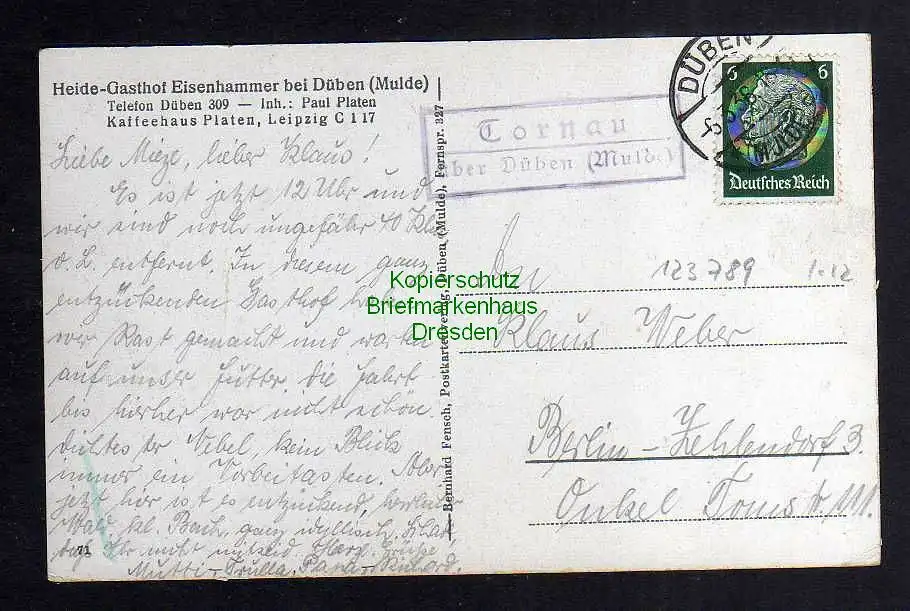 Heide-Gasthof Eisenhammer bei Düben (Mulde)
Telefon Düben 309 — Inh.: Paul Platen
Kaffeehaus Platen, Leipzig C 1 17
Liebe Mieze, lieber Klaus!
Es ist jetzt 12 Uhr und
wir sind noch ungefähr 40 Klm
v. L. entfernt. In diesem ganz
entzückenden Gasthof haben
wir Rast gemacht und warten
auf unser Futter. die Fahrt
bis hierher war nicht schön.
dichtester Nebel, kein Blick
immer ein Vorbeitasten. Aber
jetzt hier ist es entzückend,
Wald, kl. Bach, ganz idyllisch,
Ihr nicht mitseid. Herzl. Grüße
Mutti - Papa -
71
Bernhard Fensch, Postkartenverlag, Düben (Mulde), Fernspr. 327
Tornau
über Düben (Mulde)
DÜBEN
(MULDE)
6 6
Deutsches Reich
An
123789 1.12
Klaus Weber
Berlin-Zehlendorf 3.
Onkel Toms str 111.
Kopierschutz
Briefmarkenhaus
Dresden